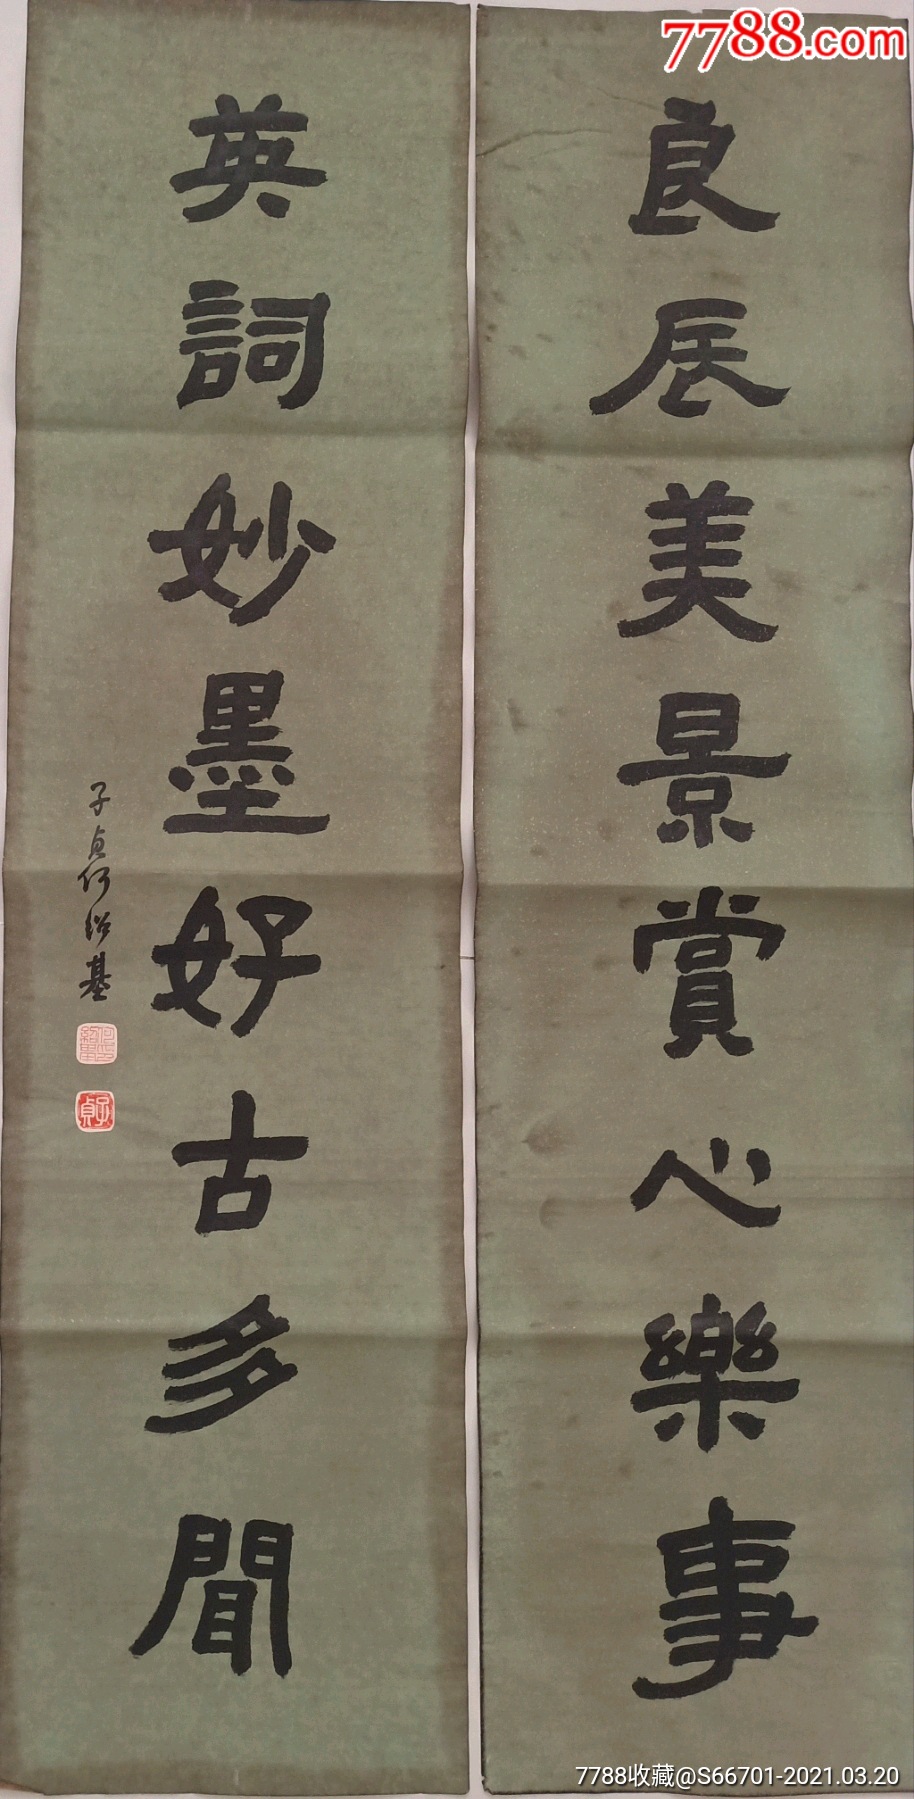 7788.com
良辰美景賞心樂事
英詞妙墨好古多聞
子貞何紹基
子貞
7788收藏@S66701-2021.03.20